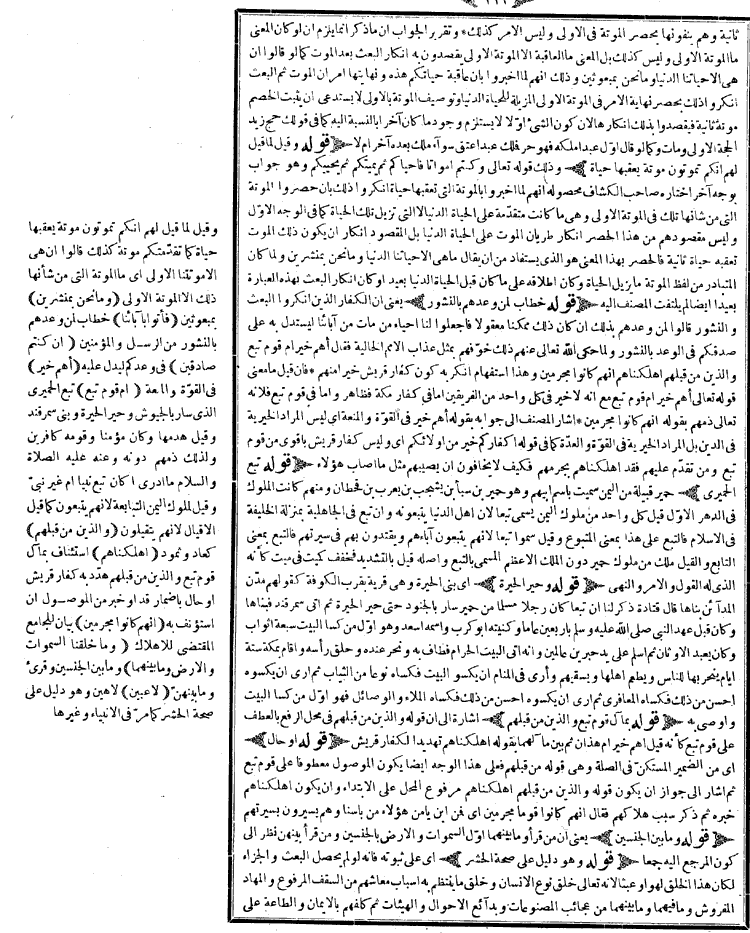 ثانية وهم ينفونها بحصر الموتة فى الاولى وليس الامر كذلك * وتقرير الجواب ان ماذكر انما يلزم ان لو كان المعنى
ما الموتة الاولى وليس كذلك بل المعنى ما العاقبة الا الموتة الاولى يقصدون به انكار البعث بعد الموت كما لو قالوا ان
هى الا حياتنا الدنيا وما نحن بمبعوثين وذلك انهم لما اخبروا بان عاقبة حياتكم هذه ونهايتها امران الموت ثم البعث
انكروا ذلك بحصر نهاية الامر فى الموتة الاولى المزيلة للحياة الدنيا وتوصيف الموتة بالاولى لا يستدعى ان يثبت الخصم
موتة ثانية فيقصدوا بذلك انكارها لان كون الشئ اوّلا لا يستلزم وجود ما كان آخرا بالنسبة اليه كما فى قولك حج زيد
الحجة الاولى ومات وكما لو قال اوّل عبد املكه فهو حر فملك عبدا عتق سوآء ملك بعده آخر ام لا ﴿ قوله وقيل لما قيل
لهم انكم تموتون موتة يعقبها حياة ﴾ وذلك قوله تعالى وكنتم امواتا فاحياكم ثم يميتكم ثم يحييكم وهو جواب
بوجه آخر اختاره صاحب الكشاف محصوله انهم لما اخبروا بالموتة التى تعقبها حياة انكروا ذلك بان حصروا الموتة
التى من شانها تلك فى الموتة الاولى وهى ما كانت متقدّمة على الحياة الدنيا لا التى تزيل تلك الحياة كما فى الوجه الاوّل
وليس مقصودهم من هذا الحصر انكار طريان الموت على الحياة الدنيا بل المقصود انكار ان يكون ذلك الموت
تعقبه حياة ثانية فالحصر بهذا المعنى هو الذى يستفاد من ان يقال ماهى الا حياتنا الدنيا وما نحن بمنشرين ولما كان
المتبادر من لفظ الموتة ما يزيل الحياة وكان اطلاقه على ما كان قبل الحياة الدنيا بعيدا وكان انكار البعث بهذه العبارة
بعيدا ايضا لم يلتفت المصنف اليه ﴿ قوله خطاب لمن وعدهم بالنشور ﴾ يعنى ان الكفار الذين انكروا البعث
والنشور قالوا لمن وعدهم بذلك ان كان ذلك ممكنا معقولا فاجعلوا لنا احياء من مات من آبائنا ليستدل به على
صدقكم فى الوعد بالنشور ولما حكى الله تعالى عنهم ذلك خوّفهم بمثل عذاب الامم الخالية فقال أهم خير ام قوم تبع
والذين من قبلهم اهلكناهم انهم كانوا مجرمين وهذا استفهام انكار به كون كفار قريش خيرا منهم * فان قيل ما معنى
قوله تعالى أهم خير ام قوم تبع مع انه لا خير فى كل واحد من الفريقين اما فى كفار مكة فظاهر واما فى قوم تبع فلانه
تعالى ذمهم بقوله انهم كانوا مجرمين * اشار المصنف الى جوابه بقوله أهم خير فى القوّة والمنعة اى ليس المراد الخيرية
فى الدين بل المراد الخيرية فى القوّة والعدّة كما فى قوله اكفاركم خير من اولائكم اى وليس كفار قريش باقوى من قوم
تبع ومن تقدّم عليهم فقد اهلكناهم بجرمهم فكيف لا يخافون ان يصيبهم مثل ما اصاب هؤلاء ﴿ قوله تبع
الحميرى ﴾ حمير قبيلة من اليمن سميت باسم ابيهم وهو حمير بن سبأ بن يشجب بن يعرب بن قحطان ومنهم كانت الملوك
فى الدهر الاوّل قيل كل واحد من ملوك اليمن يسمى تبعا لان اهل الدنيا يتبعونه وان تبع فى الجاهلية بمنزلة الخليفة
فى الاسلام فالتبع على هذا بمعنى المتبوع وقيل سموا تبعا لانهم يتبعون آباءهم ويقتدون بهم فى سيرتهم فالتبع بمعنى
التابع والقيل ملك من ملوك حمير دون الملك الاعظم المسمى بالتبع واصله قيل بالتشديد فخفف كيت فى ميت كأنه
الذى له القول والامر والنهى ﴿ قوله وحير الحيرة ﴾ اى بنى الحيرة وهى قرية بقرب الكوفة كقولهم مدّن
المدآئن بناها قال قتادة ذكر لنا ان تبعا كان رجلا مسلما من حمير سار بالجنود حتى حير الحيرة ثم اتى سمرقند فبناها
وكان قبل عهد النبى صلى الله عليه وسلم باربعين عاما وكنيته ابو كرب واسمه اسعد وهو اوّل من كسا البيت سبعة اثواب
وكان يعبد الاوثان ثم اسلم على يد حبرين عالمين وانه اتى البيت الحرام فطاف به ونحر عنده وحلق رأسه واقام بمكة ستة
ايام ينحر بها للناس ويطعم اهلها ويسقيهم وأرى فى المنام ان يكسو البيت فكساه نوعا من الثياب ثم ارى ان يكسوه
احسن من ذلك فكساه المعافرى ثم ارى ان يكسوه احسن من ذلك فكساه الملاء والوصائل فهو اوّل من كسا البيت
واوصى به ﴿ قوله بمآل قوم تبع والذين من قبلهم ﴾ اشارة الى ان قوله والذين من قبلهم فى محل الرفع بالعطف
على قوم تبع كأنه قيل اهم خير ام هذان ثم بين مآلهما بقوله اهلكناهم تهديدا لكفار قريش ﴿ قوله او حال ﴾
اى من الضمير المستكنّ فى الصلة وهى قوله من قبلهم فعلى هذا الوجه ايضا يكون الموصول معطوفا على قوم تبع
ثم اشار الى جواز ان يكون قوله والذين من قبلهم اهلكناهم مرفوع المحل على الابتداء وان يكون اهلكناهم
خبره ثم ذكر سبب هلاكهم فقال انهم كانوا قوما مجرمين اى فمن اين يامن هؤلاء من باسنا وهم يسيرون بسيرتهم
﴿ قوله وما بين الجنسين ﴾ يعنى ان من قرأ وما بينهما اوّل السموات والارض بالجنسين ومن قرأ بينهن نظر الى
كون المرجع اليه جمعا ﴿ قوله وهو دليل على صحة الحشر ﴾ اى على ثبوته فانه لو لم يحصل البعث والجزاء
لكان هذا الخلق لهوا وعبثا لانه تعالى خلق نوع الانسان وخلق ما ينتظم به اسباب معاشهم من السقف المرفوع والمهاد
المفروش وما فيهما وما بينهما من عجائب المصنوعات وبدآئع الاحوال والهيئات ثم كلفهم بالايمان والطاعة على
وقيل لما قيل لهم انكم تموتون موتة يعقبها
حياة كما تقدّمتكم موتة كذلك قالوا ان هى
الا موتتنا الاولى اى ما الموتة التى من شأنها
ذلك الا الموتة الاولى (وما نحن بمنشرين)
بمبعوثين (فأتوا بآبائنا) خطاب لمن وعدهم
بالنشور من الرسل والمؤمنين (ان كنتم
صادقين) فى وعدكم ليدل عليه (أهم خير)
فى القوّة والمنعة (ام قوم تبع) تبع الحميرى
الذى سار بالجيوش وحير الحيرة وبنى سمرقند
وقيل هدمها وكان مؤمنا وقومه كافرين
ولذلك ذمهم دونه وعنه عليه الصلاة
والسلام ما ادرى اكان تبع نبيا ام غير نبىّ
وقيل لملوك اليمن التبابعة لانهم يتبعون كما قيل
الاقيال لانهم يتقيلون (والذين من قبلهم)
كعاد وثمود (اهلكناهم) استئناف بمآل
قوم تبع والذين من قبلهم هدد به كفار قريش
او حال باضمار قد او خبر من الموصول ان
استؤنف به (انهم كانوا مجرمين) بيان للجامع
المقتضى للاهلاك (وما خلقنا السموات
والارض وما بينهما) وما بين الجنسين وقرئ
وما بينهنّ (لاعبين) لاهين وهو دليل على
صحة الحشر كما مرّ فى الانبياء وغيرها